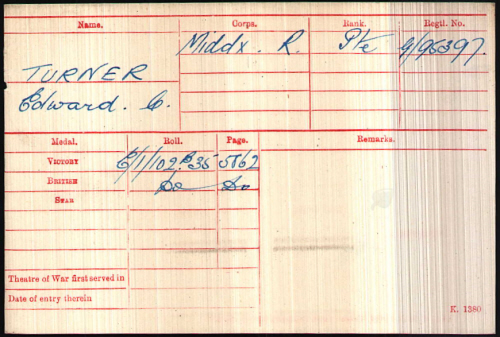 Name. Corps. Rank. Regtl. No.
Middx. R. Pte G/95397.
TURNER
Edward. C.
Medal. Roll. Page. Remarks.
VICTORY E/1/102 B 35 5862
BRITISH Do Do
STAR
Theatre of War first served in
Date of entry therein
K. 1380